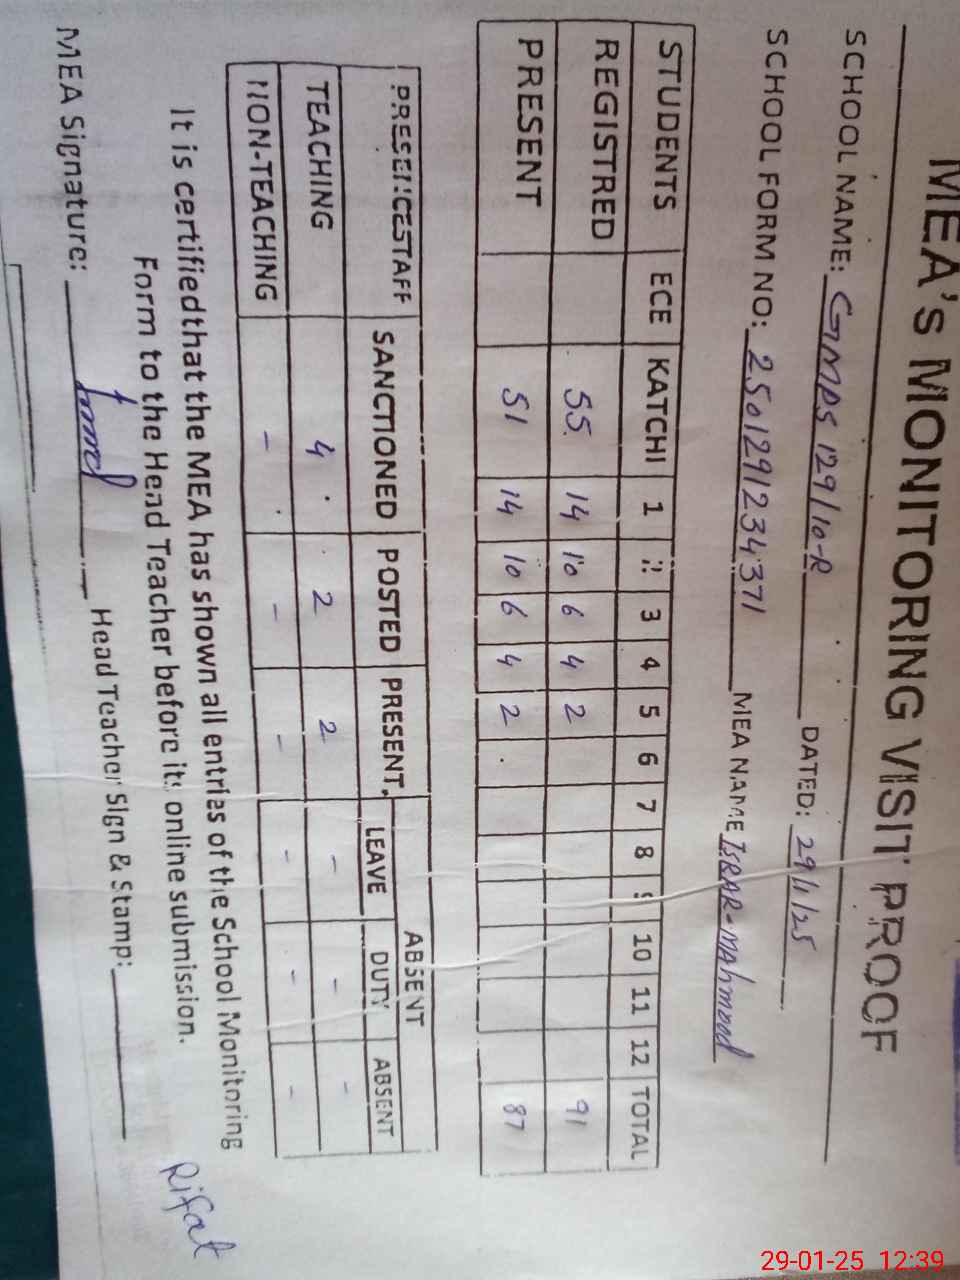 MEA's MONITORING VISIT PROOF
SCHOOL NAME: GMPS 129/10-R DATED: 29/1/25
SCHOOL FORM NO: 2501291234371 MEA NAME ISRAR-MAHMOOD
STUDENTS ECE KATCHI 1 2 3 4 5 6 7 8 9 10 11 12 TOTAL
REGISTRED 55 14 10 6 4 2 91
PRESENT 51 14 10 6 4 2 87
PRESENCESTAFF SANCTIONED POSTED PRESENT ABSENT
LEAVE DUTY ABSENT
TEACHING 4 2 2 - - -
NON-TEACHING - - - - - -
It is certified that the MEA has shown all entries of the School Monitoring
Form to the Head Teacher before its online submission.
Rifat
MEA Signature: Head Teacher Sign & Stamp:
29-01-25 12:39